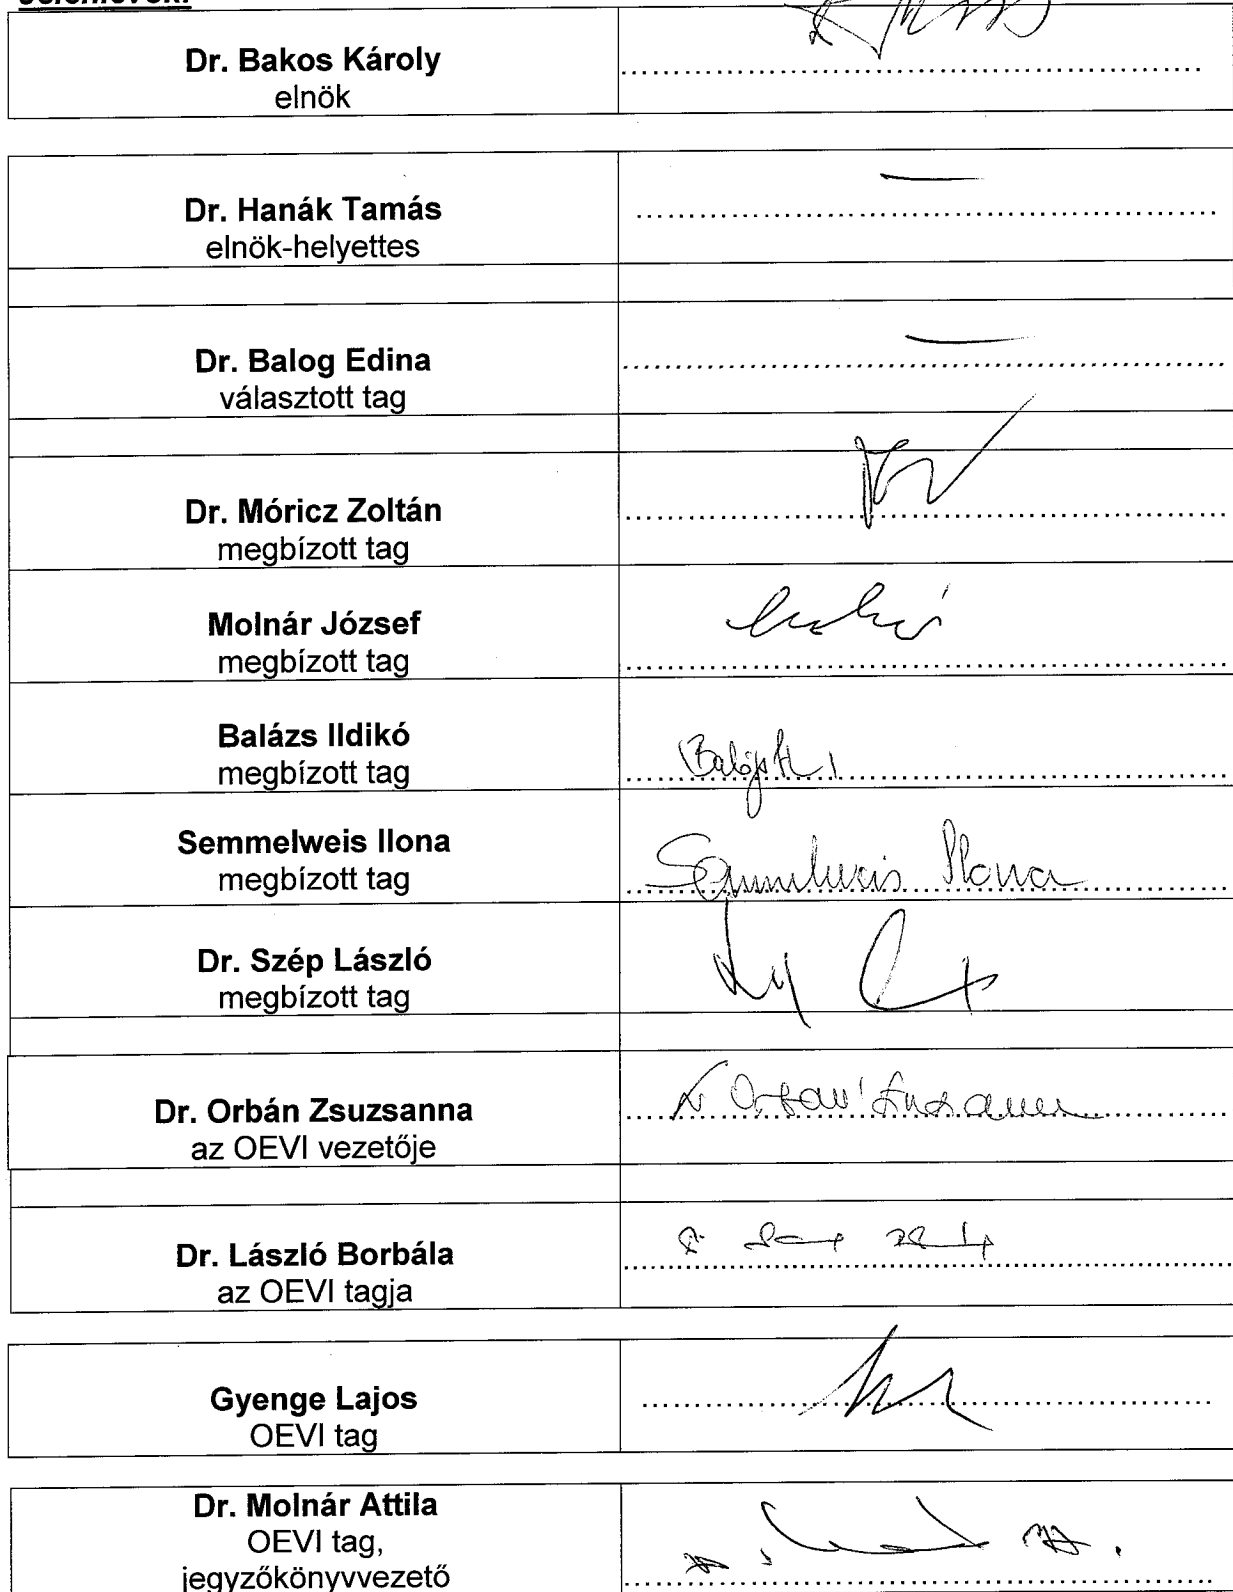 Jelenlévők:
Dr. Bakos Károly
elnök
Dr. Hanák Tamás
elnök-helyettes
Dr. Balog Edina
választott tag
Dr. Móricz Zoltán
megbízott tag
Molnár József
megbízott tag
Balázs Ildikó
megbízott tag
Semmelweis Ilona
megbízott tag
Semmelweis Ilona
Dr. Szép László
megbízott tag
Dr. Orbán Zsuzsanna
az OEVI vezetője
Dr Orbán Zsuzsanna
Dr. László Borbála
az OEVI tagja
Gyenge Lajos
OEVI tag
Dr. Molnár Attila
OEVI tag,
jegyzőkönyvvezető